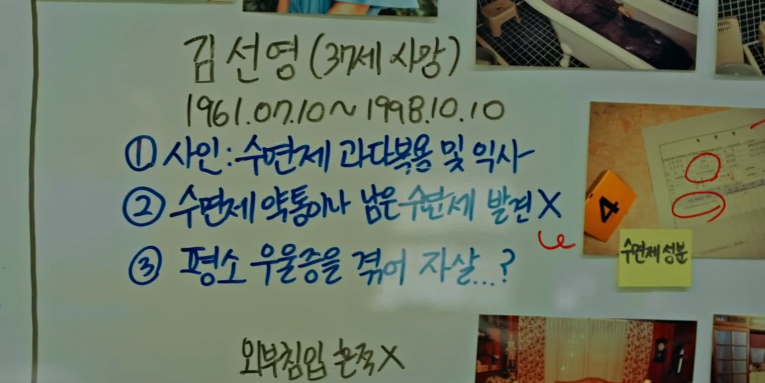 김선영(37세 사망)
1961.07.10~1998.10.10
① 사인: 수면제 과다복용 및 익사
② 수면제 약통이나 남은 수면제 발견 X
③ 평소 우울증을 겪어 자살...?
4
수면제 성분
외부침입 흔적 X